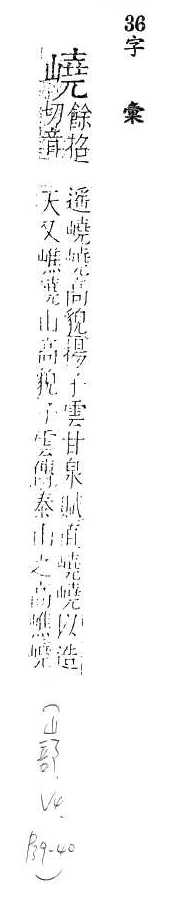 36字彙
嶢餘招切音
遥嶢嶢高貌揚子雲甘泉賦直嶢嶢以造
天又嶕嶢山高貌子雲傳泰山之高嶕嶢
(山部.
V4.
P39-40)